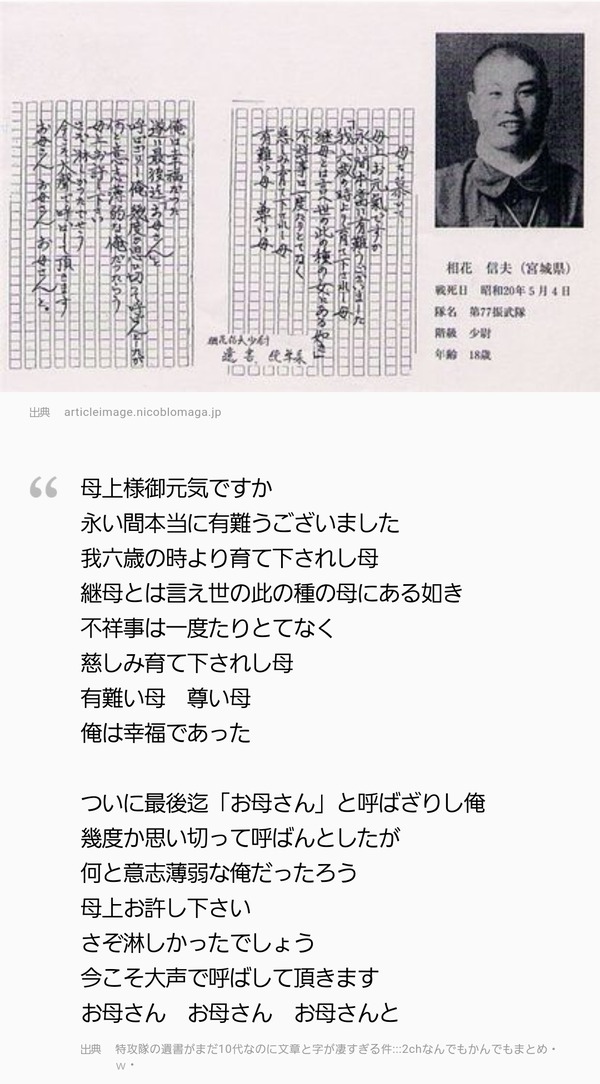 相花　信夫（宮城県）
戦死日　昭和20年５月４日
隊名　第77振武隊
階級　少尉
年齢　18歳
母を慕いて
母上お元気ですか
永い間本当に有難うございました
我六歳の時より育て下されし母
継母とは言え世の此の種の女にある如き
不祥事は一度たりとてなく
慈しみ育て下されし母
有難い母　尊い母
相花信夫少尉
遺書
俺は幸福だった
遂に最後迄「お母さん」と
呼ばざりし俺 幾度か思い切って呼ばんとしたが
何と意志薄弱な俺だったろう
母上お許し下さい
さぞ淋しかったでしょう
今こそ大声で呼ばして頂きます
お母さん　お母さん　お母さんと。
出典　articleimage.nicoblomaga.jp
“
母上様御元気ですか
永い間本当に有難うございました
我六歳の時より育て下されし母
継母とは言え世の此の種の母にある如き
不祥事は一度たりとてなく
慈しみ育て下されし母
有難い母　尊い母
俺は幸福であった
ついに最後迄「お母さん」と呼ばざりし俺
幾度か思い切って呼ばんとしたが
何と意志薄弱な俺だったろう
母上お許し下さい
さぞ淋しかったでしょう
今こそ大声で呼ばして頂きます
お母さん　お母さん　お母さんと
出典　特攻隊の遺書がまだ10代なのに文章と字が凄すぎる件:::2chなんでもかんでもまとめ・
ｗ・